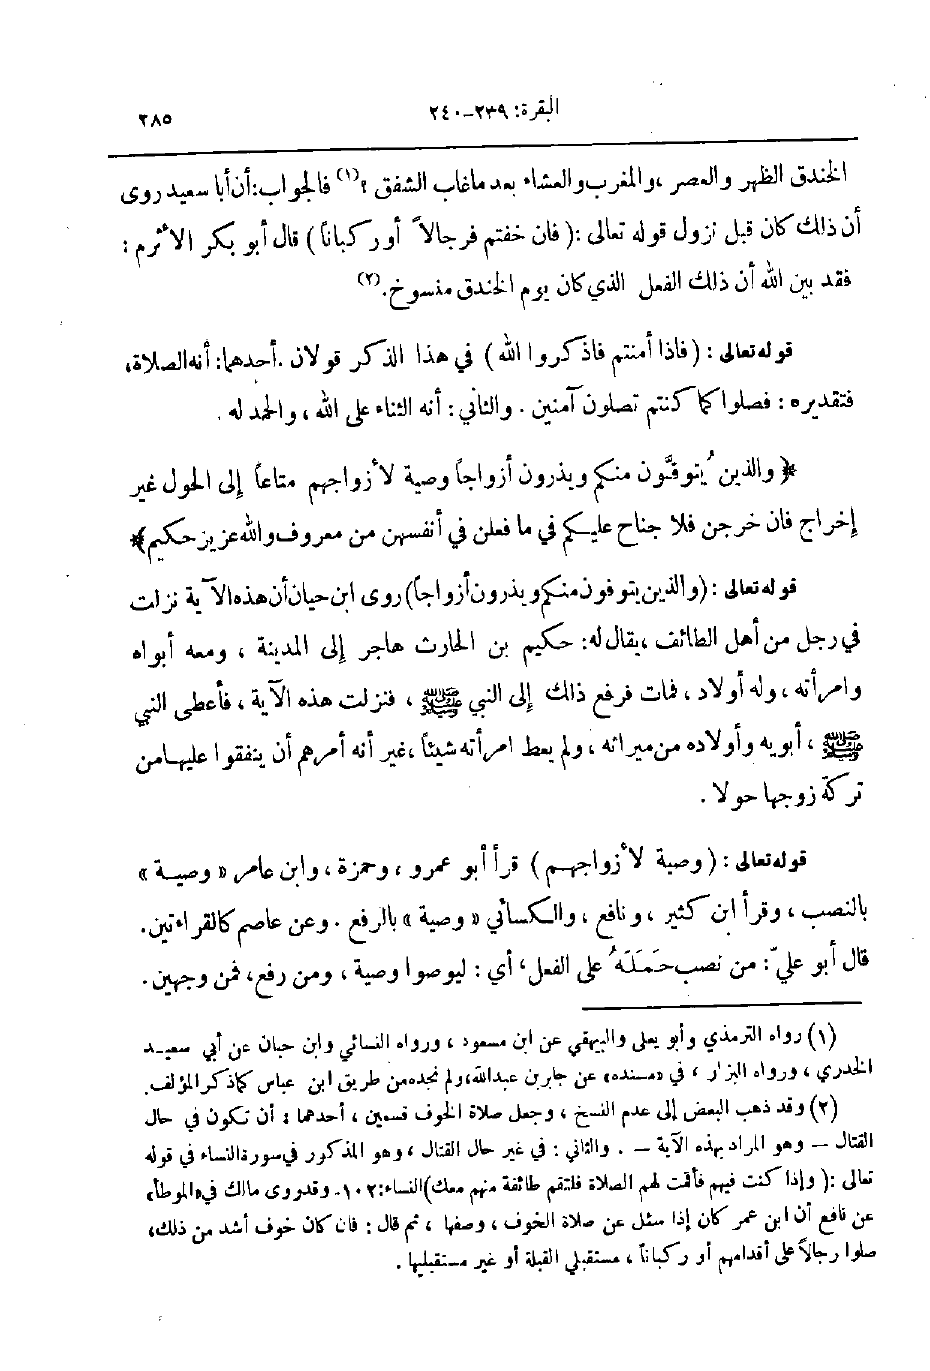 البقرة: ٢٣٩-٢٤٠ ٢٨٥
الخندق الظهر والعصر ، والمغرب والعشاء بعد ما غاب الشفق ؟(١) فالجواب: أن أبا سعيد روى
أن ذلك كان قبل نزول قوله تعالى :( فان خفتم فرجالاً أو ركباناً ) قال أبو بكر الأثرم :
فقد بين الله أن ذلك الفعل الذي كان يوم الخندق منسوخ.(٢)
قوله تعالى : ( فاذا أمنتم فاذكروا الله ) في هذا الذكر قولان . أحدهما: أنه الصلاة،
فتقديره : فصلوا كما كنتم تصلون آمنين . والثاني : أنه الثناء على الله ، والحمد له .
﴿ والذين يُتوفَّون منكم ويذرون أزواجاً وصية لأزواجهم متاعاً إلى الحول غير
إخراج فان خرجن فلا جناح عليكم في ما فعلن في أنفسهن من معروف والله عزيز حكيم ﴾
قوله تعالى : ( والذين يتوفون منكم ويذرون أزواجاً ) روى ابن حيان أن هذه الآية نزلت
في رجل من أهل الطائف ، يقال له: حكيم بن الحارث هاجر إلى المدينة ، ومعه أبواه
وامرأته ، وله أولاد ، فمات فرفع ذلك إلى النبي ﷺ ، فنزلت هذه الآية ، فأعطى النبي
ﷺ ، أبويه وأولاده من ميراثه ، ولم يعط امرأته شيئاً ، غير أنه أمرهم أن ينفقوا عليها من
تركة زوجها حولا .
قوله تعالى : ( وصية لأزواجهم ) قرأ أبو عمرو ، وحمزة ، وابن عامر « وصية »
بالنصب ، وقرأ ابن كثير ، ونافع ، والكسائي « وصية » بالرفع . وعن عاصم كالقراءتين.
قال أبو عليّ: من نصب حَمَلَهُ على الفعل ، أي : ليوصوا وصية ، ومن رفع، فمن وجهين.
(١) رواه الترمذي وأبو يعلى والبيهقي عن ابن مسعود ، ورواه النسائي وابن حبان عن أبي سعيد
الخدري ، ورواه البزار ، في «مسنده» عن جابر بن عبدالله، ولم نجده من طريق ابن عباس كما ذكر المؤلف.
(٢) وقد ذهب البعض إلى عدم النسخ ، وجعل صلاة الخوف قسمين ، أحدهما : أن تكون في حال
القتال – وهو المراد بهذه الآية – . والثاني : في غير حال القتال ، وهو المذكور في سورة النساء في قوله
تعالى :( وإذا كنت فيهم فأقمت لهم الصلاة فلتقم طائفة منهم معك)النساء:١٠٢. وقد روى مالك في «الموطأ»
عن نافع أن ابن عمر كان إذا سئل عن صلاة الخوف ، وصفها ، ثم قال : فان كان خوف أشد من ذلك،
صلوا رجالاً على أقدامهم أو ركباناً ، مستقبلي القبلة أو غير مستقبليها .